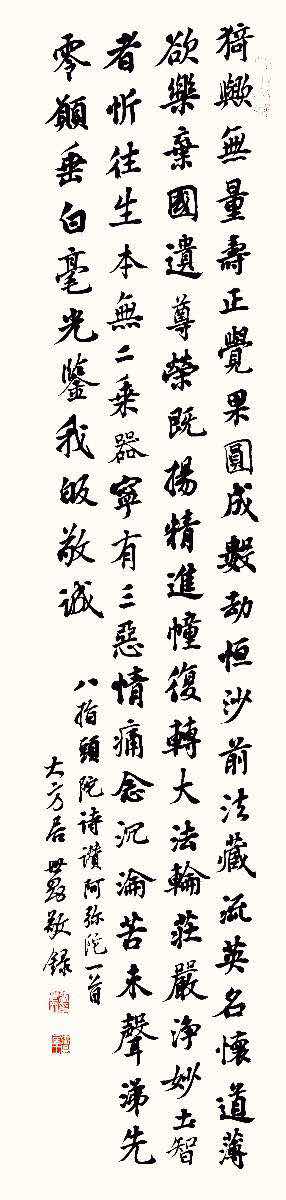 猗歟無量壽正覺果圓成數劫恒沙前法藏流英名懷道薄
欲樂棄國遺尊榮既揚精進幢復轉大法輪莊嚴净妙土智
者忻往生本無二乗器寧有三惡情痛念沉淪苦未聲涕先
零願垂白毫光鑒我皈敬诚
八指頭陀诗讚阿弥陀一首
大方居 敬録